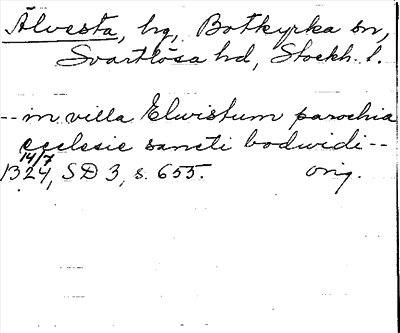 Älvesta, hg, Botkyrka sn,
Svartlösa hd, Stockh. l.
--in villa Elwistum parochia
ecclesie sancti bodwidi--
14/7
1324, SD 3, s. 655. orig.